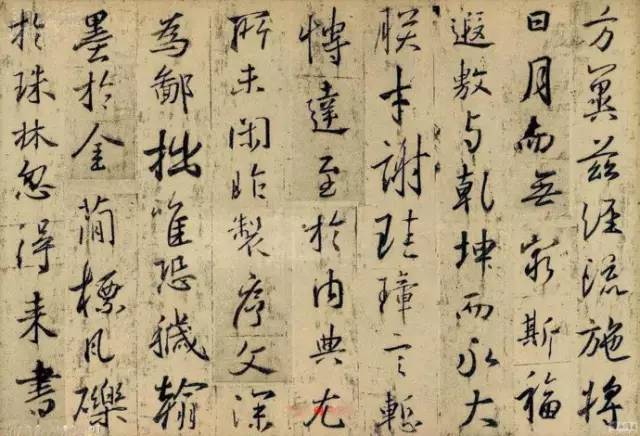 方冀茲經流施將
日月而無窮斯福
遐敷与乾坤而永大
朕才謝珪璋言慙
博達至於內典尤
所未閑昨製序文深
為鄙拙唯恐穢翰
墨於金簡標瓦礫
於珠林忽得来書